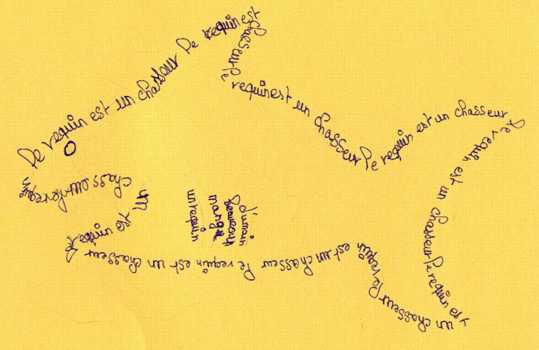 Le requin est un chasseur Le requin est
chasseur Le requin est un chasseur Le requin est un chasseur
Le requin est un chasseur Le requin est
un chasseur Le requin
est un chasseur Le requin est un chasseur
Le requin est un
chasseur Le requin
un requin
mange
beaucoup
d'umain